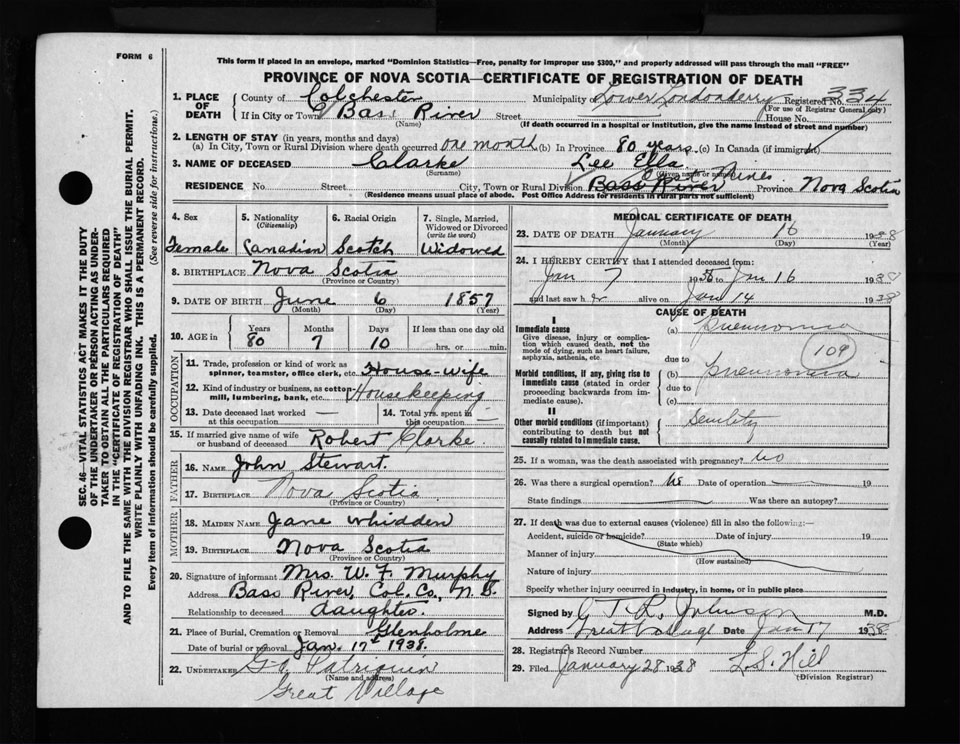 FORM 6
This form if placed in an envelope, marked "Dominion Statistics—Free, penalty for improper use $300," and properly addressed will pass through the mail "FREE"
PROVINCE OF NOVA SCOTIA—CERTIFICATE OF REGISTRATION OF DEATH
1. PLACE OF DEATH County of Colchester Municipality Lower Londonderry Registered No. 334
(For use of Registrar General only)
If in City or Town Bass River Street House No.
(Name) (If death occurred in a hospital or institution, give the name instead of street and number)
2. LENGTH OF STAY (in years, months and days)
(a) In City, Town or Rural Division where death occurred one month (b) In Province 80 years. (c) In Canada (if immigrant)
3. NAME OF DECEASED Clarke Lee Ella
(Surname) (Given name or names)
Mines
RESIDENCE No. Street City, Town or Rural Division Bass River Province Nova Scotia
(Residence means usual place of abode. Post Office Address for residents in rural parts not sufficient)
4. Sex 5. Nationality (Citizenship) 6. Racial Origin 7. Single, Married, Widowed or Divorced (write the word)
Female Canadian Scotch Widowed
8. BIRTHPLACE Nova Scotia
(Province or Country)
9. DATE OF BIRTH June 6 1857
(Month) (Day) (Year)
10. AGE in Years Months Days If less than one day old
80 7 10 hrs. or min.
OCCUPATION
11. Trade, profession or kind of work as spinner, teamster, office clerk, etc. House-wife
12. Kind of industry or business, as cotton-mill, lumbering, bank, etc. Housekeeping
13. Date deceased last worked at this occupation — 14. Total yrs. spent in this occupation —
15. If married give name of wife or husband of deceased Robert Clarke.
FATHER
16. NAME John Stewart.
17. BIRTHPLACE Nova Scotia
(Province or Country)
MOTHER
18. MAIDEN NAME Jane Whidden
19. BIRTHPLACE Nova Scotia
(Province or Country)
20. Signature of informant Mrs. W. F. Murphy
Address Bass River, Col. Co., N.S.
Relationship to deceased daughter.
21. Place of Burial, Cremation or Removal Glenholme
Date of burial or removal Jan. 17th 1938.
22. UNDERTAKER G. A. Patriquin
(Name and address)
Great Village
MEDICAL CERTIFICATE OF DEATH
23. DATE OF DEATH January 16 1938
(Month) (Day) (Year)
24. I HEREBY CERTIFY that I attended deceased from:
Jan 7 19 to Jan 16 1938
and last saw her alive on Jan 14 1938
CAUSE OF DEATH
I
Immediate cause
Give disease, injury or complication which caused death, not the mode of dying, such as heart failure, asphyxia, asthenia, etc.
(a) Pneumonia
109
due to
Morbid conditions, if any, giving rise to immediate cause (stated in order proceeding backwards from immediate cause).
(b) Pneumonia
due to
(c)
II
Other morbid conditions (if important) contributing to death but not causally related to immediate cause.
Senility
25. If a woman, was the death associated with pregnancy? No
26. Was there a surgical operation? No Date of operation 19
State findings Was there an autopsy?
27. If death was due to external causes (violence) fill in also the following:—
Accident, suicide or homicide? Date of injury 19
(State which)
Manner of injury
(How sustained)
Nature of injury
Specify whether injury occurred in industry, in home, or in public place
Signed by G T R Johnson M.D.
Address Great Village Date Jan 17 1938
28. Registrar's Record Number
29. Filed January 28 1938 L. S. Hill
(Division Registrar)
SEC. 46—VITAL STATISTICS ACT MAKES IT THE DUTY
OF THE UNDERTAKER OR PERSON ACTING AS UNDER-
TAKER TO OBTAIN ALL THE PARTICULARS REQUIRED
IN THE "CERTIFICATE OF REGISTRATION OF DEATH"
AND TO FILE THE SAME WITH THE DIVISION REGISTRAR WHO SHALL ISSUE THE BURIAL PERMIT.
WRITE PLAINLY WITH UNFADING INK. THIS IS A PERMANENT RECORD.
Every item of information should be carefully supplied. (See reverse side for instructions.)